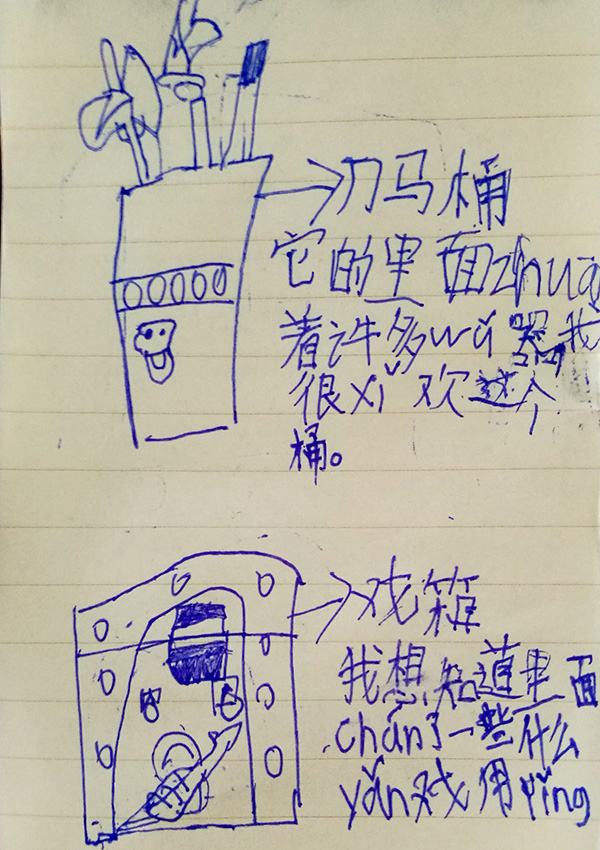 刀马桶
它的里面zhuag
着许多wǔ器,我
很xǐ欢这个
桶。
戏箱
我想知道里面
chán了一些什么
yǎn戏用yǐng